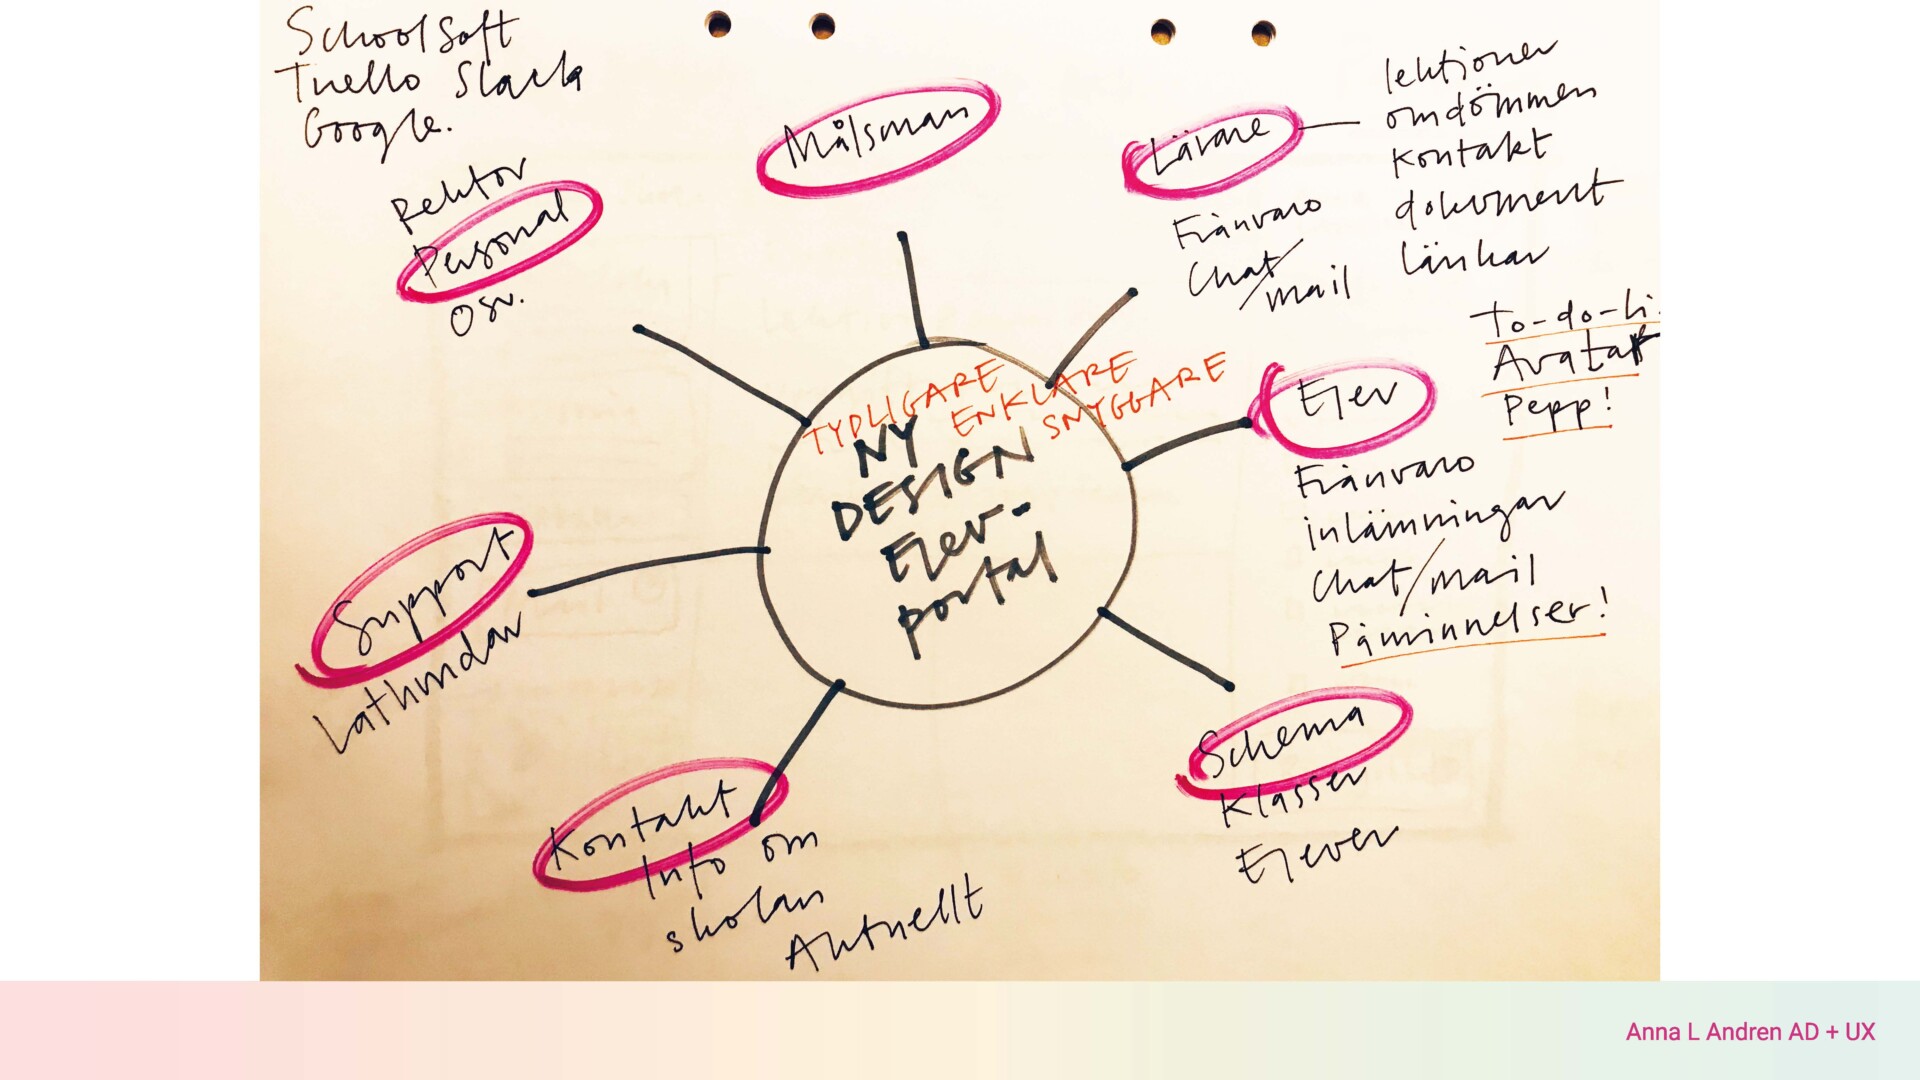 SchoolSoft
Trello Slack
Google.
Rektor
Personal
osv.
Målsman
Lärare
Frånvaro
Chat/
mail
lektioner
omdömmen
kontakt
dokument
länkar
To-do-li
Avatar
Pepp!
Elev
Frånvaro
inlämningar
Chat/mail
Påminnelser!
TYDLIGARE
ENKLARE
SNYGGARE
NY
DESIGN
Elev-
portal
Support
Lathundar
Kontakt
Info om
skolan
Aktuellt
Schema
Klasser
Elever
Anna L Andren AD + UX